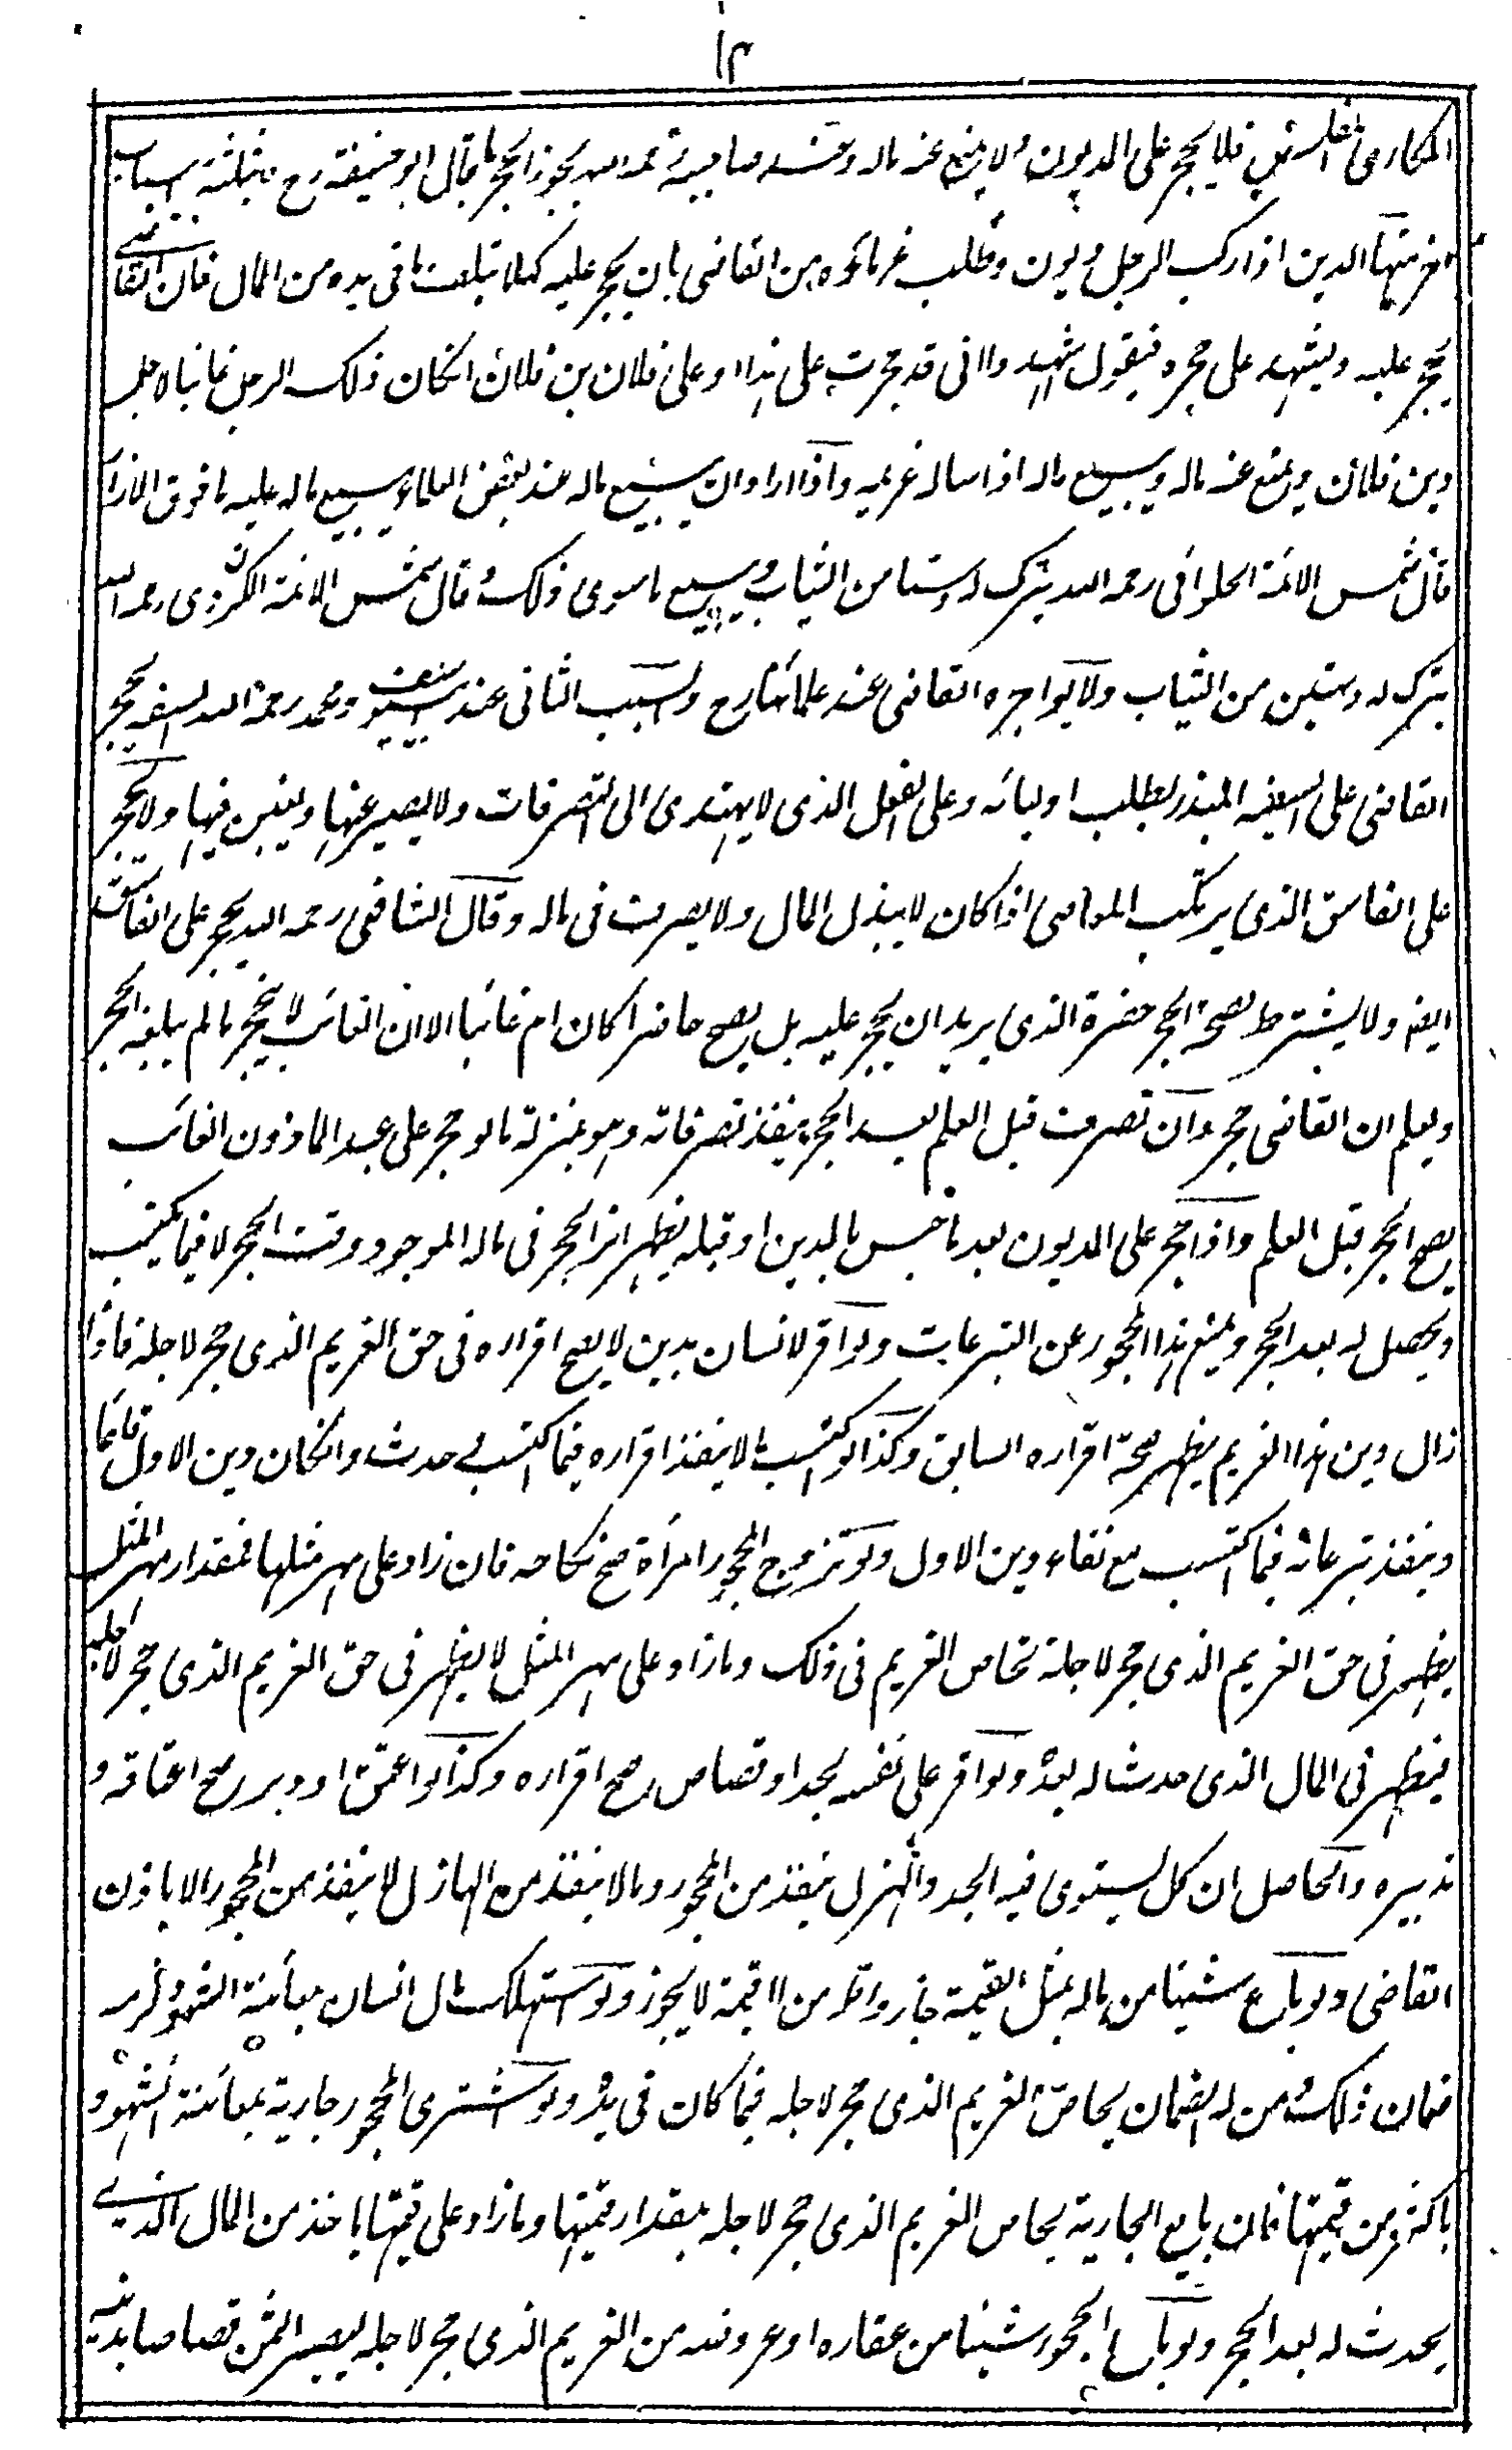 المكارى المفلس فلا يحجر على المديون ولا يمنع عنه ماله وعند صاحبيه رحمهما الله يجوز الحجر بما قال ابو حنيفة رح وبثلثة اسباب
اخر منها الدين اذا ركب الرجل ديون وطلب غرماؤه من القاضى بان يحجر عليه كيلا يتلف ما فى يده من المال فان القاضى
يحجر عليه ويشهد على حجره فيقول اشهدوا انى قد حجرت على هذا او على فلان بن فلان انكان ذلك الرجل غائبا لاجل
دين فلان ويمنع عنه ماله ويبيع ماله اذا ساله غريمه واذا اراد ان يبيع ماله عند بعض العلماء يبيع ماله عليه ما فوق الازار
قال شمس الائمة الحلوائى رحمه الله يترك له دستا من الثياب ويبيع ما سوى ذلك وقال شمس الائمة الكردرى رحمه الله
يترك له دستين من الثياب ولا يواجره القاضى عند علمائنا رح والسبب الثانى عند ابى يوسف ومحمد رحمهما الله السفه يحجر
القاضى على السفيه المبذر بطلب اوليائه وعلى المغفل الذى لا يهتدى الى التصرفات ولا يصبر عنها ويغبن فيها ولا يحجر
على الفاسق الذى يرتكب المعاصى اذا كان لا يبذل المال ولا يصرف فى ماله وقال الشافعى رحمه الله يحجر على الفاسق
ايضا ولا يشترط لصحة الحجر حضرة الذى يريد ان يحجر عليه بل يصح حاضرا كان ام غائبا الا ان الغائب لا ينحجر ما لم يبلغه الحجر
ويعلم ان القاضى حجره وان تصرف قبل العلم بعد الحجر ينفذ تصرفاته وهو بمنزلة ما لو حجر على عبد الماذون الغائب
يصح الحجر قبل العلم واذا حجر على المديون بعد ما حبس بالدين او قبله يظهر اثر الحجر فى ماله الموجود وقت الحجر لا فيما يكتسب
ويحصل له بعد الحجر ويمنع هذا المحجور عن التبرعات ولو اقر لانسان بدين لا يصح اقراره فى حق الغريم الذى حجر لاجله فاذا
زال دين هذا الغريم يظهر صحة اقراره السابق وكذا لو اكتسب مالا ينفذ اقراره فيما اكتسب حدث وانكان دين الاول قائما
وينفذ تبرعاته فيما اكتسب مع بقاء دين الاول ولو تزوج المحجور امرأة صح نكاحه فان زاد على مهر مثلها فمقدار مهر المثل
يظهر فى حق الغريم الذى حجر لاجله تحاص الغريم فى ذلك وما زاد على مهر المثل لا يظهر فى حق الغريم الذى حجر لاجله
فيظهر فى المال الذى حدث له بعده ولو اقر على نفسه بحد او قصاص صح اقراره وكذا لو اعتق او دبر صح اعتاقه و
تدبيره والحاصل ان كل يستوى فيه الجد والهزل ينفذ من المحجور وما لا ينفذ من الهازل لا ينفذ من المحجور الا باذن
القاضى ولو باع شيئا من ماله بمثل القيمة جاز واقل من القيمة لا يجوز ولو استهلك مال انسان بمعائنة الشهود لزمه
ضمان ذلك ومن له الضمان يحاص الغريم الذى حجر لاجله فيما كان فى يده ولو اشترى المحجور جارية بمعائنة الشهود
باكثر من قيمتها فان بايع الجارية يحاص الغريم الذى حجر لاجله بمقدار قيمتها وما زاد على قيمتها ياخذ من المال الذى
يحدث له بعد الحجر ولو باع المحجور شيئا من عقاره او عروضه من الغريم الذى حجر لاجله ليصير الثمن قصاصا بدينه